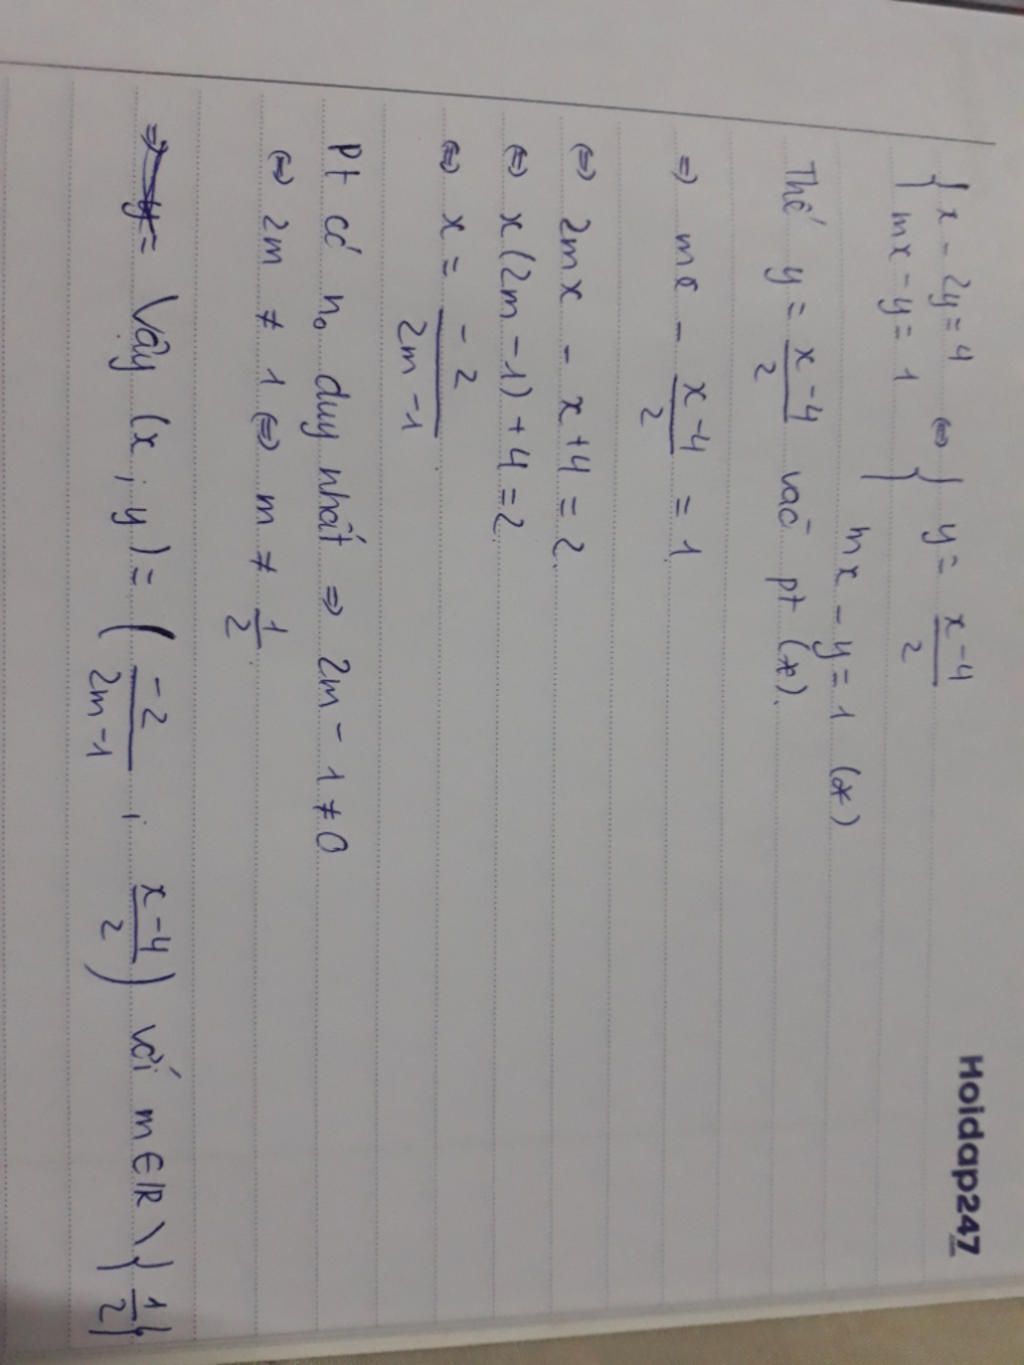 Hoidap247
{ x - 2y = 4 ⇔ { y = (x-4)/2
{ mx - y = 1 { mx - y = 1 (*)
Thế y = (x-4)/2 vào pt (*).
⇒ mx - (x-4)/2 = 1
⇔ 2mx - x + 4 = 2
⇔ x(2m - 1) + 4 = 2
⇔ x = -2/(2m - 1)
Pt có no duy nhất ⇒ 2m - 1 ≠ 0
⇔ 2m ≠ 1 ⇔ m ≠ 1/2
Vậy (x ; y) = (-2/(2m-1) ; (x-4)/2) với m ∈ R \ {1/2}